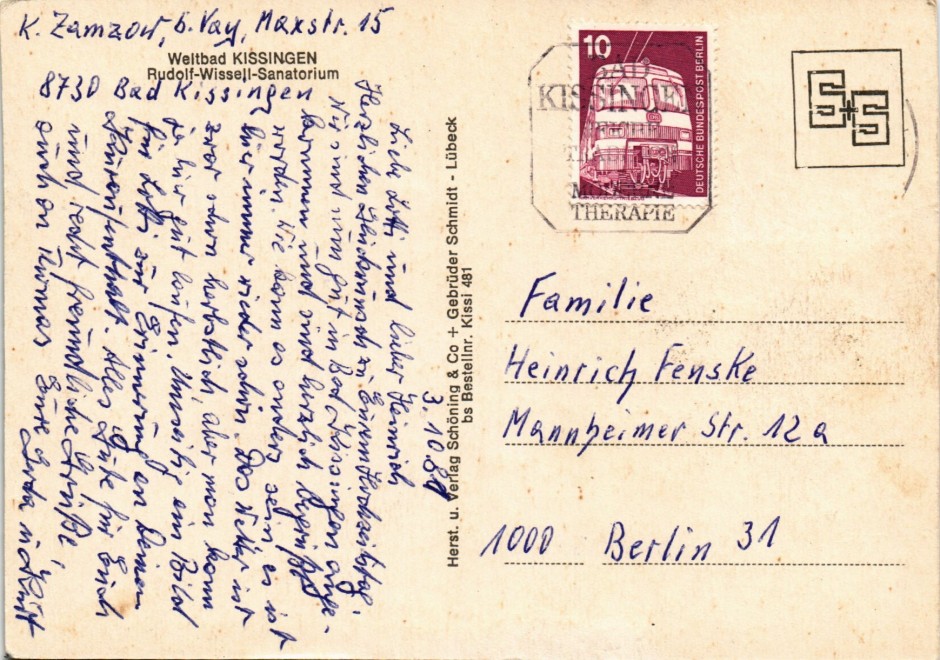 K. Zamzow, b. Vay, Maxstr. 15
Weltbad KISSINGEN
Rudolf-Wissell-Sanatorium
8730 Bad Kissingen
3.10.80
Liebe Lotti und lieber Heinrich
Herzlichen Glückwunsch zu Eurem Hochzeitstag.
Wir sind nun gut in Bad Kissingen ange-
kommen und sind herzlich begrüßt
worden. Wie kann es anders sein es ist
hier immer wieder schön. Das Wetter ist
zwar schon herbstlich, aber man kann
ja hier gut laufen. Umseitig ein Bild
für Lotti zur Erinnerung an Deinen
Kuraufenthalt. Alles Gute für Euch
und recht freundliche Grüße,
auch an Thomas Eure u. Kurt
Herst. u. Verlag Schöning & Co + Gebrüder Schmidt - Lübeck
bs Bestellnr. Kissi 481
10
DEUTSCHE BUNDESPOST BERLIN
BAD
KISSINGEN
THERAPIE
S+S
Familie
Heinrich Fenske
Mannheimer Str. 12a
1000 Berlin 31